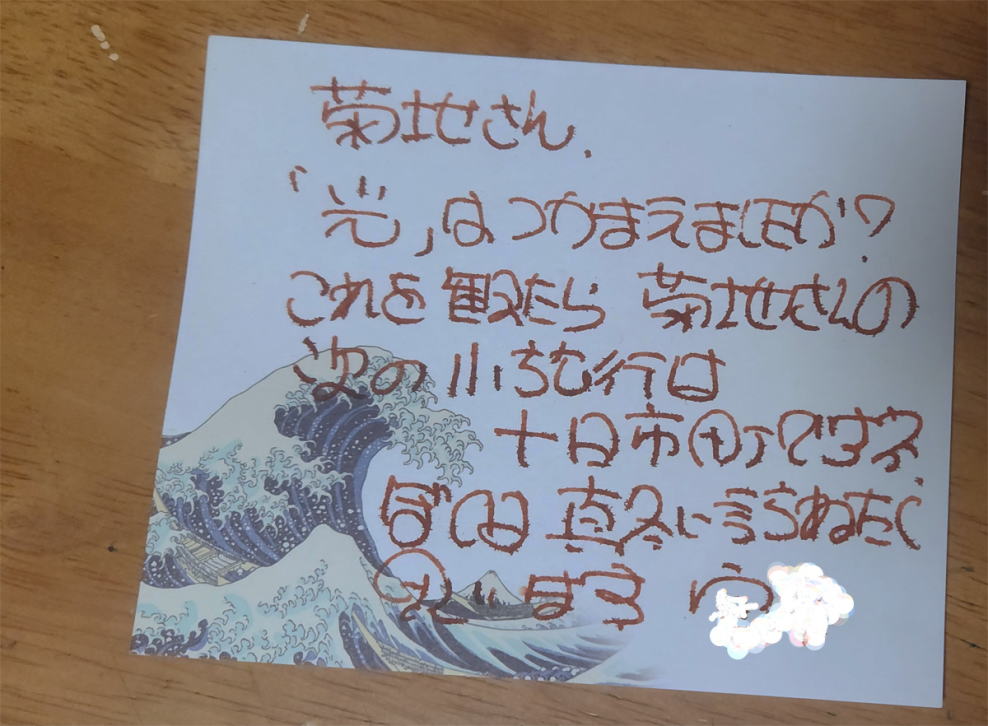 菊地さん.
「光」はつかまえましたか?
これを観たら 菊地さんの
次の小旅行は
十日市町ですネ.
ぼくは 真冬に訪ねたく
思います